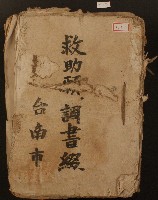 救助願調書綴
台南市